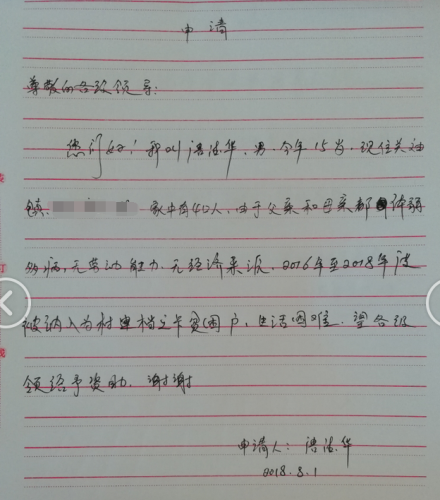 申请
尊敬的各级领导:
您们好!我叫 德华,男,今年15岁,现住关
镇 家中有4口人,由于父亲和母亲都体弱
多病,无劳动能力,无经济来源,2016年至2018年
被纳入为村建档立卡贫困户,生活困难,望各级
领 给予资助,谢谢
申请人: 德华
2018.8.1